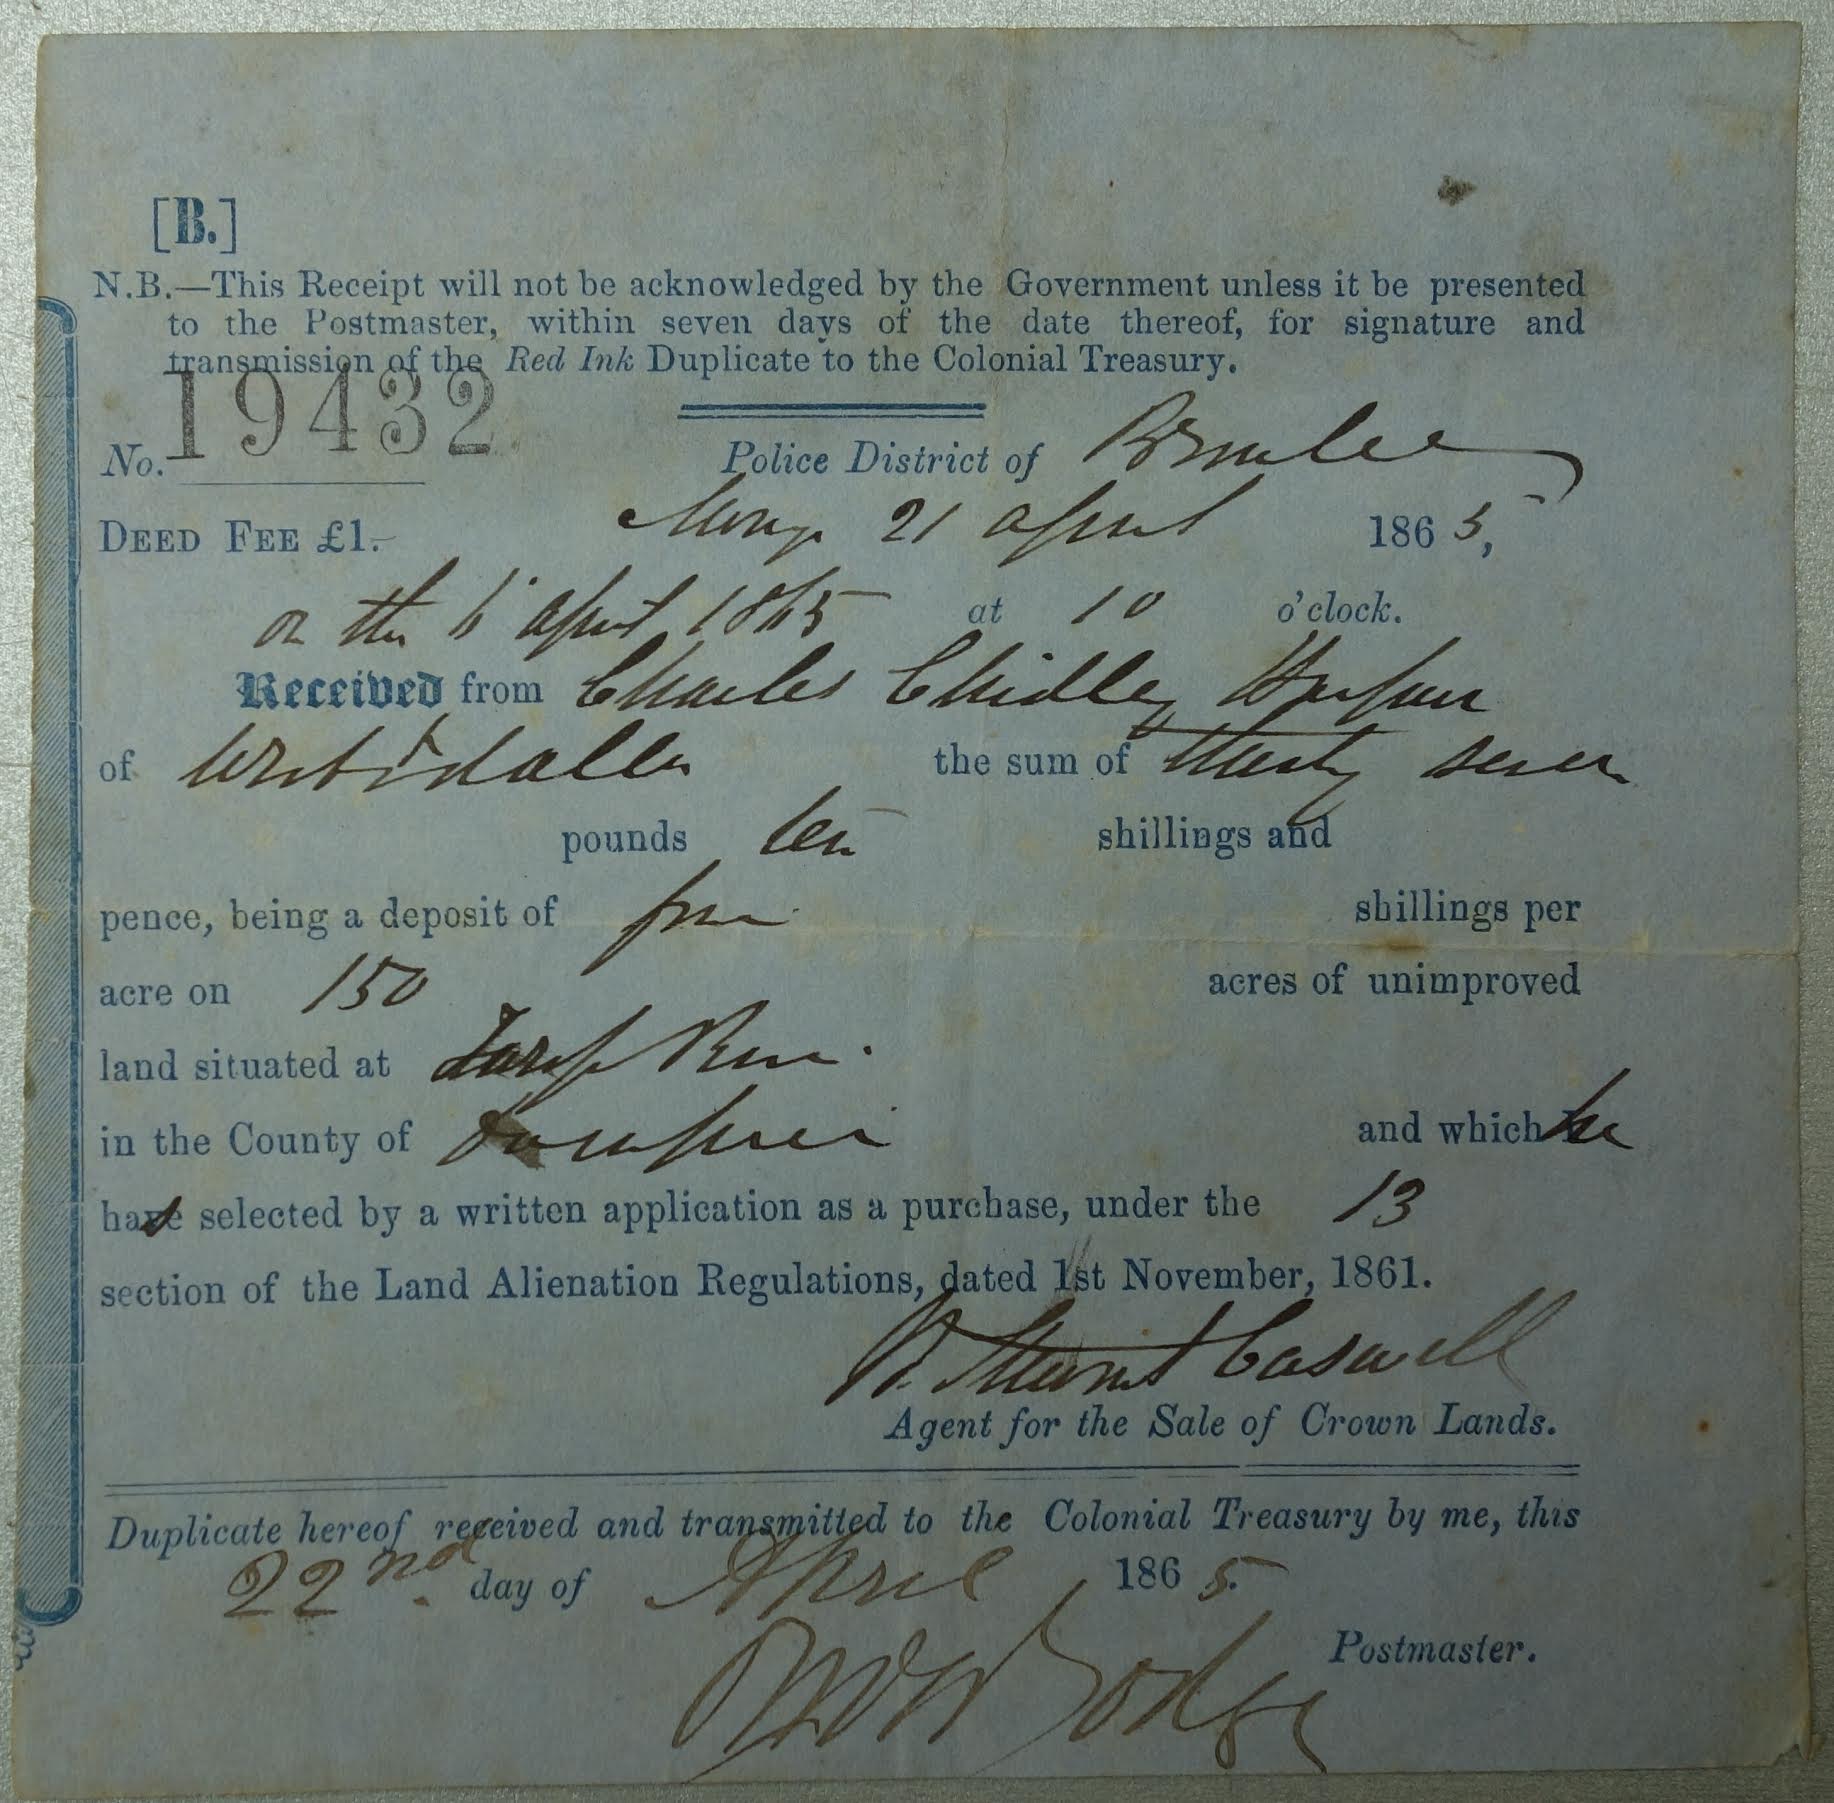 [B.]
N.B.—This Receipt will not be acknowledged by the Government unless it be presented
to the Postmaster, within seven days of the date thereof, for signature and
transmission of the Red Ink Duplicate to the Colonial Treasury.
No. 19432 Police District of
DEED FEE £1. 21 April 1865,
on the 6 April 1865 at 10 o'clock.
Received from Charles Chidley Harpur
of the sum of Thirty seven
pounds ten shillings and
pence, being a deposit of five shillings per
acre on 150 acres of unimproved
land situated at
in the County of Dampier and which he
has selected by a written application as a purchase, under the 13
section of the Land Alienation Regulations, dated 1st November, 1861.
W. Stewart Caswell
Agent for the Sale of Crown Lands.
Duplicate hereof received and transmitted to the Colonial Treasury by me, this
22nd. day of April 1865.
Postmaster.